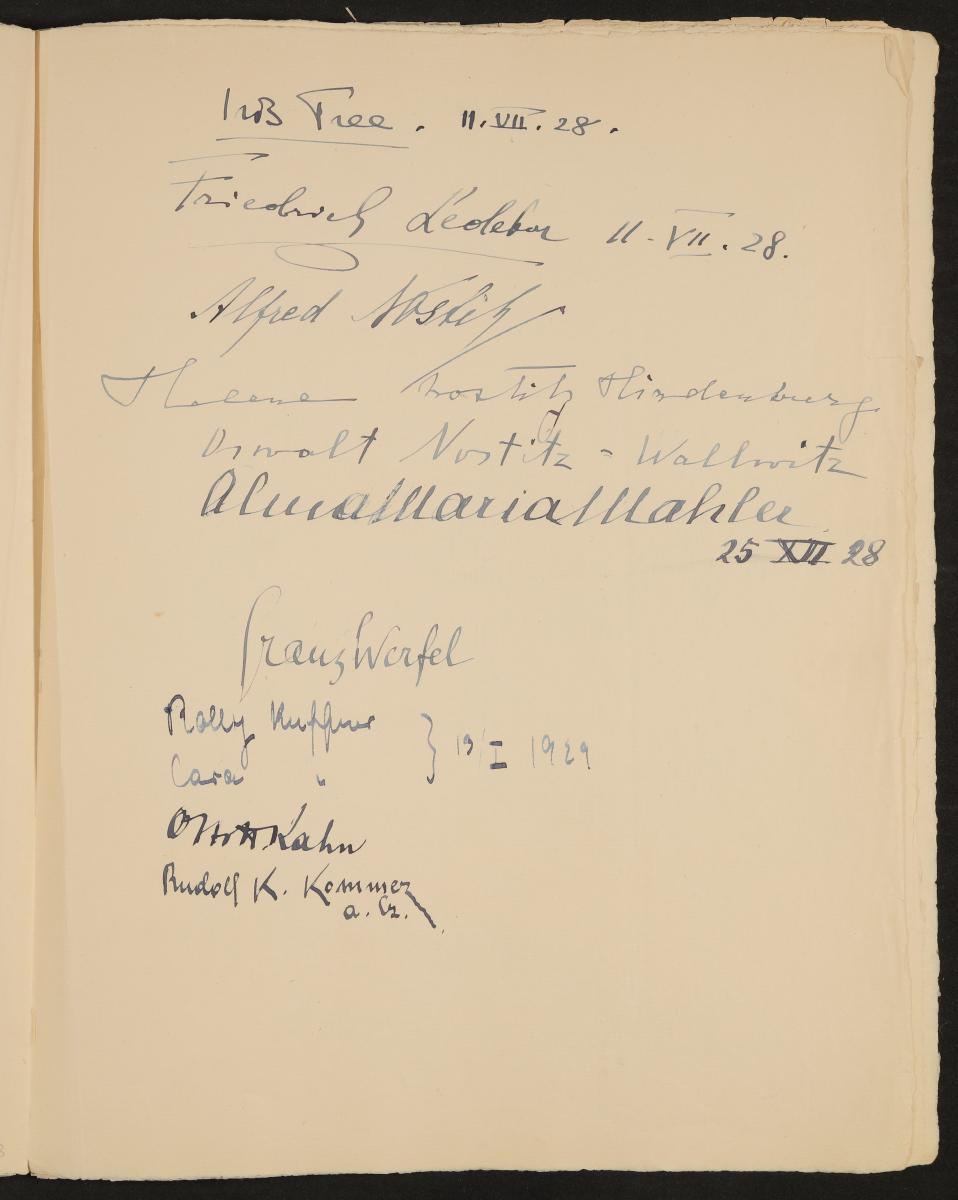 Iris Tree. 11.VII.28.
Friedrich Ledebur 11-VII.28.
Alfred Nostitz
Helene Nostitz Hindenburg.
Oswalt Nostitz-Wallwitz
Alma Maria Mahler
25 XII 28
Franz Werfel
Rolly Kuffner
Cara " } 19/I 1929
Otto H. Kahn
Rudolf K. Kommer
a. Cz.